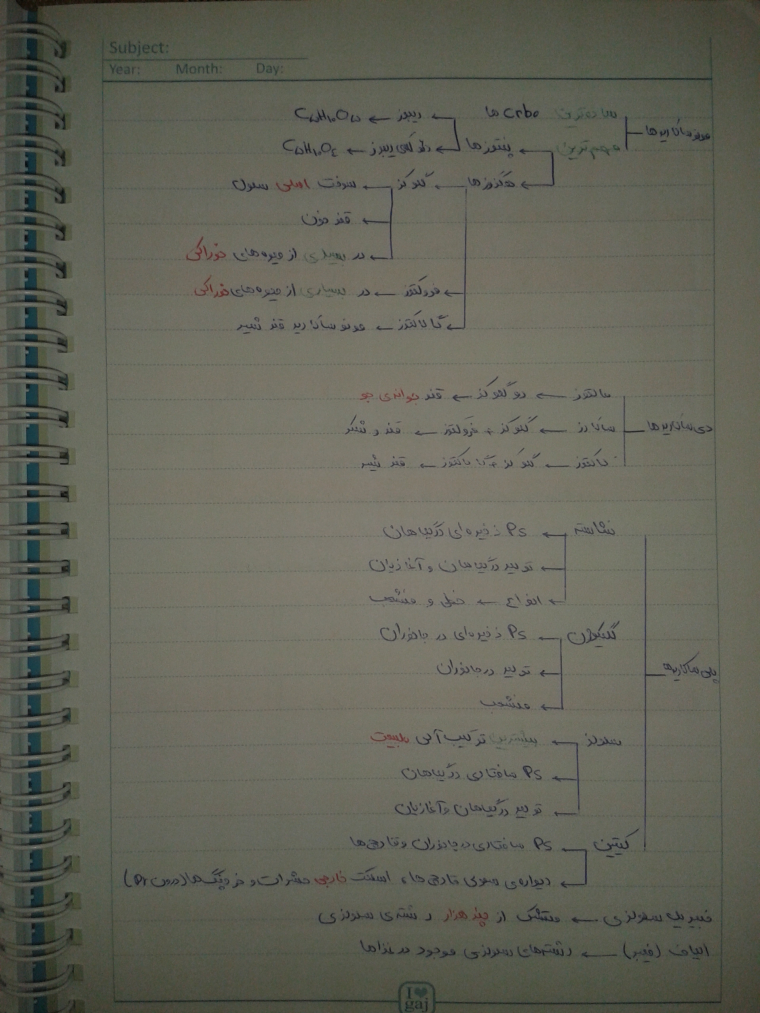 Subject:
Year: Month: Day:
مونوساکاریدها
ساده‌ترین Crbo ها
مهم‌ترین
پنتوزها ← ریبوز ← C₅H₁₀O₅
← دئوکسی ریبوز ← C₅H₁₀O₄
هگزوزها ← گلوکز ← سوخت اصلی سلول
← قند خون
← در بسیاری از میوه‌های خوراکی
← فروکتوز ← در بسیاری از میوه‌های خوراکی
← گالاکتوز ← مونوساکارید قند شیر
دی ساکاریدها
مالتوز ← دو گلوکز ← قند جوانه‌ی جو
ساکارز ← گلوکز + فروکتوز ← قند و شکر
لاکتوز ← گلوکز + گالاکتوز ← قند شیر
پلی ساکاریدها
نشاسته ← Ps ذخیره‌ای گیاهان
← تولید در گیاهان و آغازیان
← انواع ← خطی و منشعب
گلیکوژن ← Ps ذخیره‌ای در جانوران
← تولید در جانوران
← منشعب
سلولز ← بیشترین ترکیب آلی طبیعت
← Ps ساختاری در گیاهان
← تولید در گیاهان و آغازیان
کیتین ← Ps ساختاری در جانوران و قارچ‌ها
← دیواره‌ی سلولی قارچ‌ها، اسکلت خارجی حشرات و خرچنگ‌ها (درون Pr)
فیبریل سلولزی ← متشکل از چند هزار رشته‌ی سلولزی
الیاف (فیبر) ← رشته‌های سلولزی موجود در غذاها
I ♥ gaj